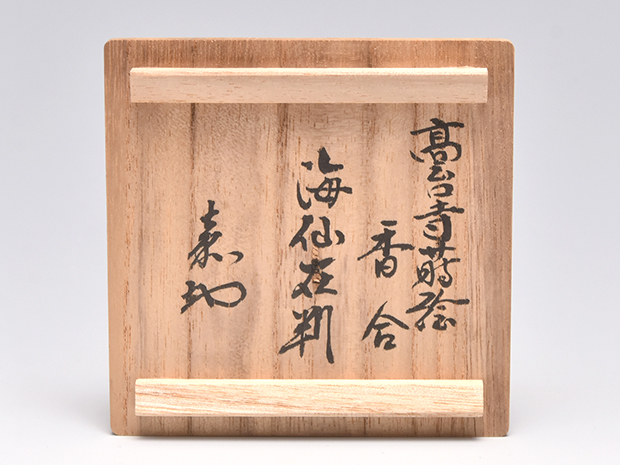 高台寺蒔絵
香合
海仙在判